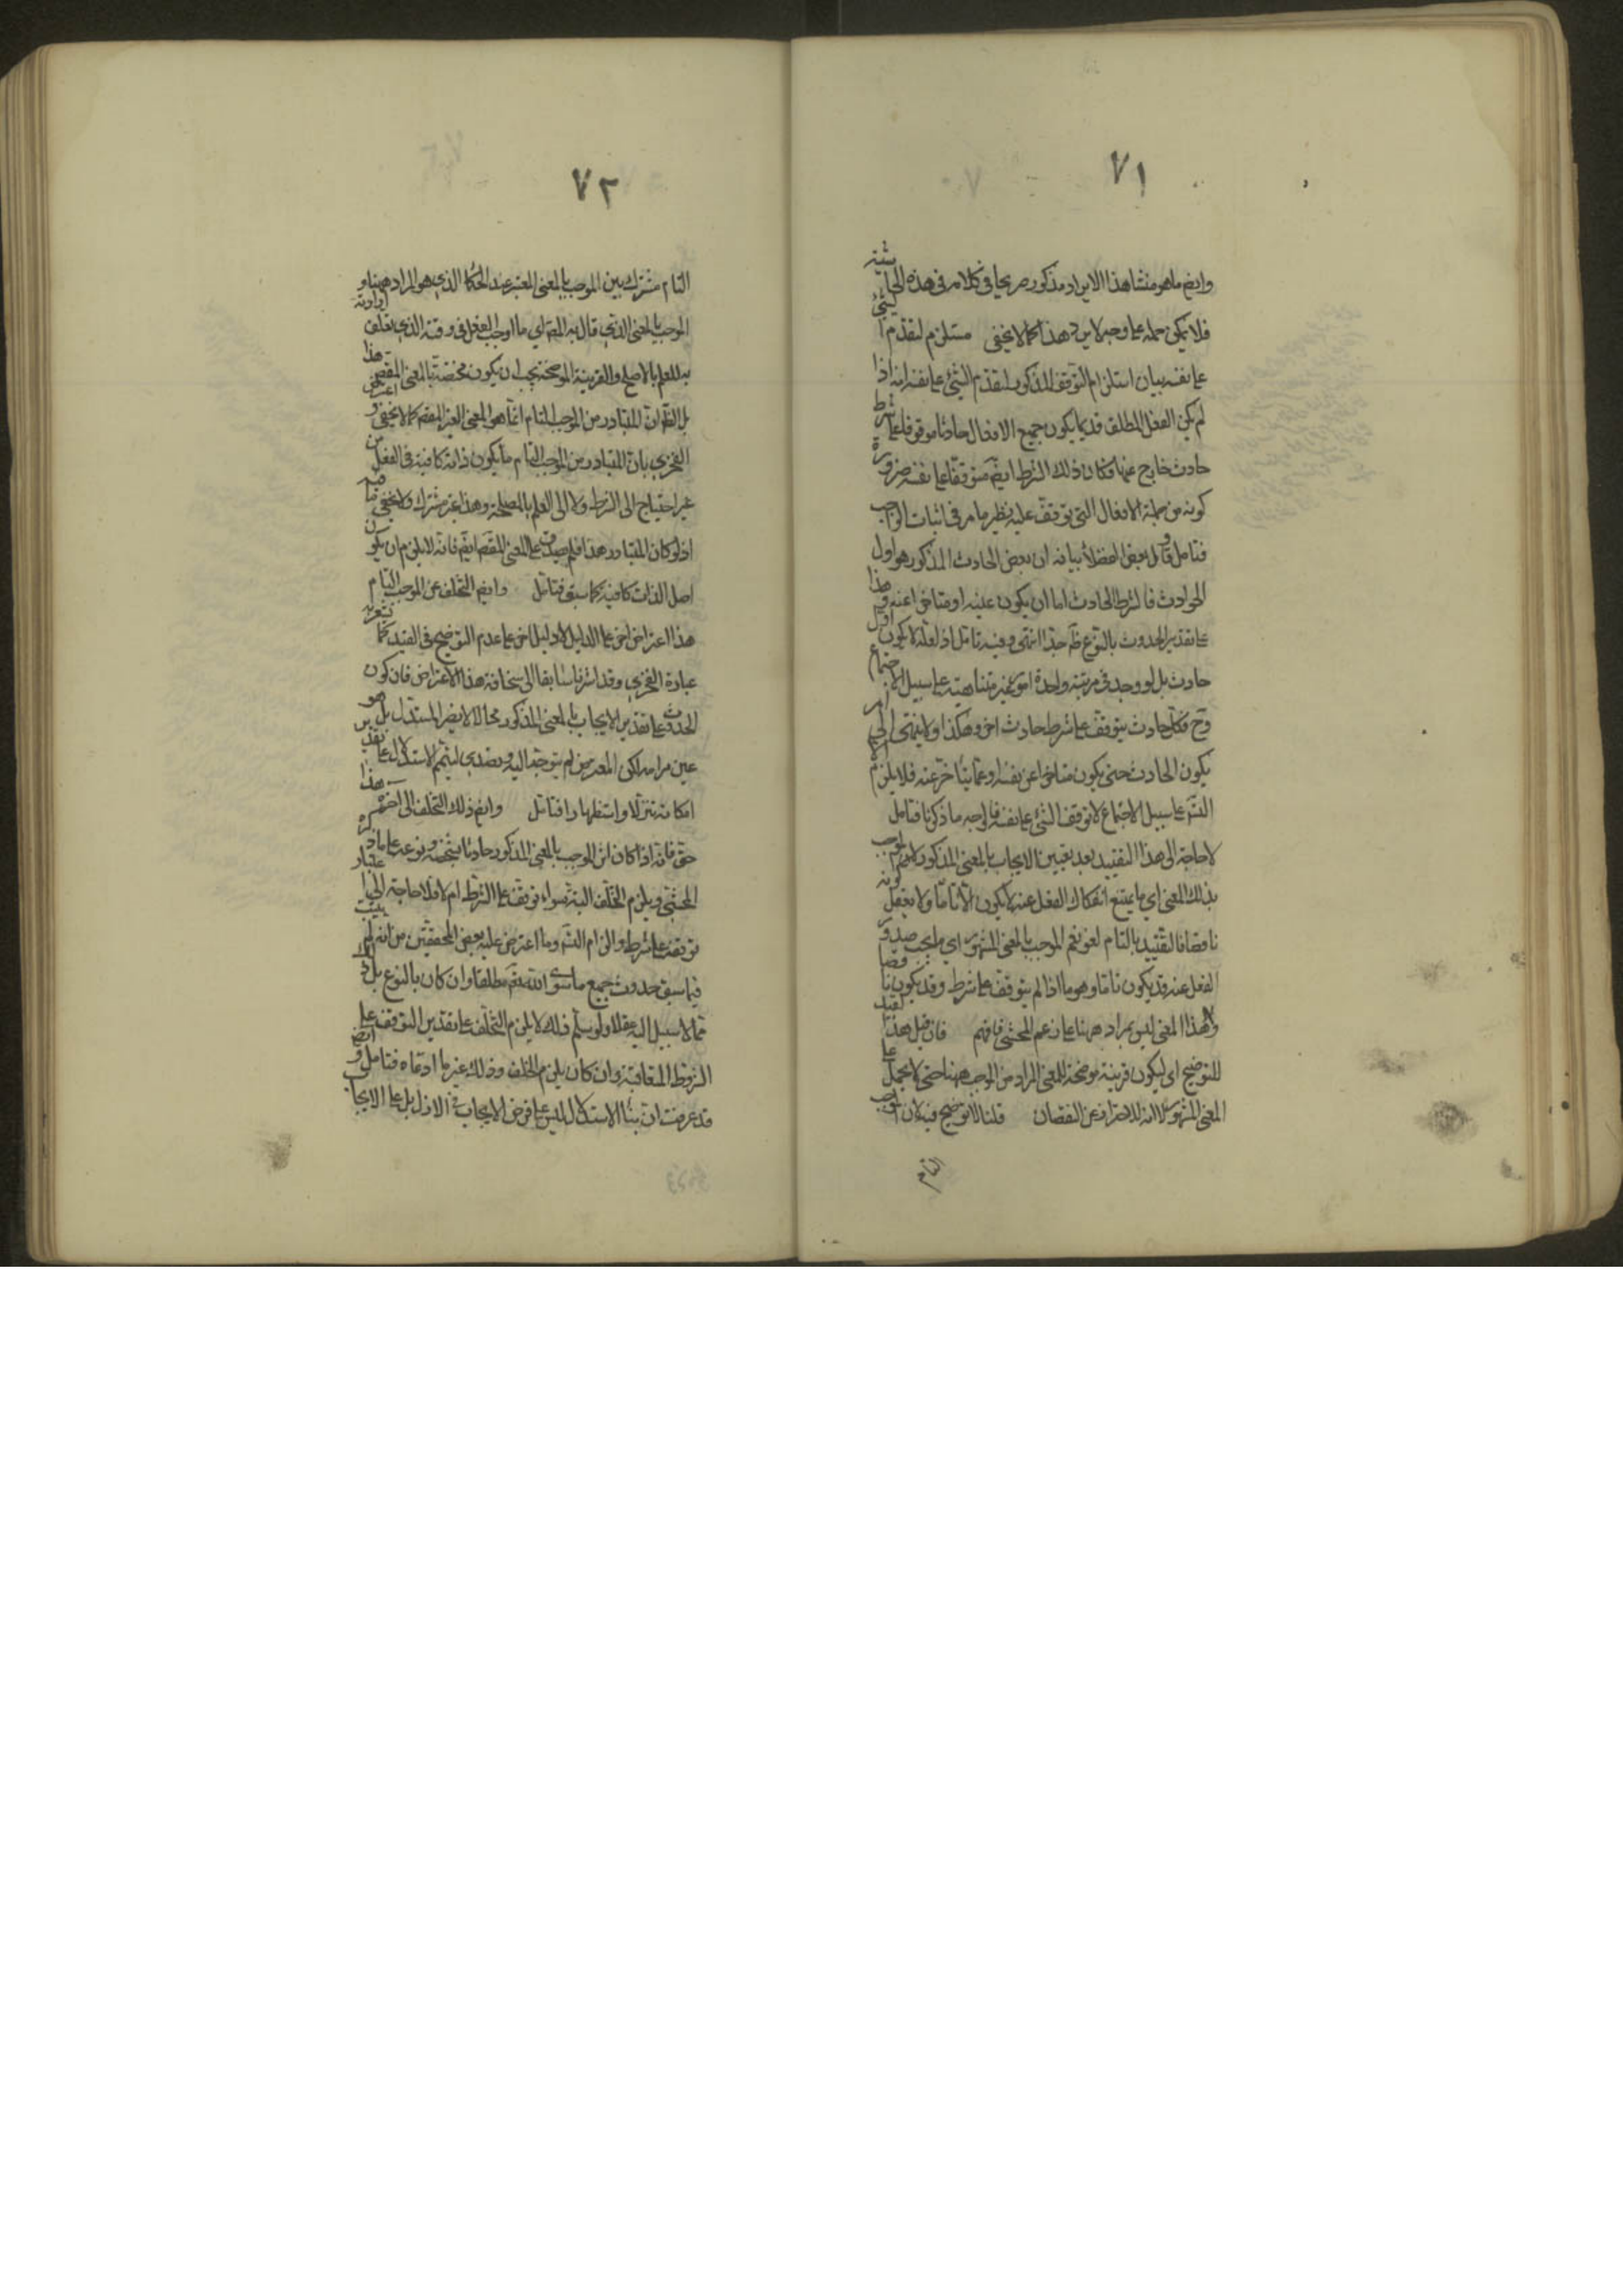 ٧١
وايضا ما هو منشا هذا الايراد مذكور صريحا في كلامه في هذه الحاشية
فلا يمكن حمله على وجه لا يرد هذا كما لا يخفى مستلزم لتقدم الشيء
على نفسه بيان استلزام التوقف المذكور لتقدم الشيء على نفسه انه اذا
لم يكن الفعل المطلق قديما يكون جميع الافعال حادثا موقوفا على شرط
حادث خارج عنها وكان ذلك الشرط ايضا متوقفا على نفسه ضرورة
كونه من جملة الافعال التي توقف عليه نظير ما مر في اثبات الواجب
فتامل وقال بعض الفضلاء بيانه ان بعض الحادث المذكور هو اول
الحوادث فالشرط الحادث اما ان يكون عينه او متاخرا عنه وهذا
على تقدير الحدوث بالنوع ظ جدا انتهى وفيه تامل اذ لعله لا يكون اول
حادث بل لو وجد في مرتبة واحدة امور غير متناهية على سبيل الاجتماع
وح فكل حادث يتوقف على شرط حادث اخر وهكذا ولا ينتهي الى امر
يكون الحادث حتى يكون متاخرا عن نفسه او عما يتاخر عنه فلا يلزم الا
التسم على سبيل الاجتماع لا توقف الشيء على نفسه فالوجه ما ذكرنا فتامل
لا حاجة الى هذا التقييد بعد تعيين الايجاب بالمعنى المذكور لان الموجب
بذلك المعنى اي ما يمتنع انفكاك الفعل عنه لا يكون الا تاما ولا يعقل كونه
ناقصا فالتقييد بالتام لغو نعم الموجب بالمعنى المشهور اي ما يجب صدور
الفعل عنه قد يكون تاما وهو ما اذا لم يتوقف على شرط وقد يكون ناقصا
وهذا المعنى ليس بمراد ههنا على زعم المحشي فافهم فان قيل هذا القيد
للتوضيح اي ليكون قرينة موضحة للمعنى المراد من الموجب ههنا حتى لا يحمل على
المعنى المشهور لا انه للاحتراز عن النقصان قلنا لا توضيح فيه لان الموجب
التام
٧٢
التام مشترك بين الموجب بالمعنى المعتبر عند الحكما الذي هو المراد ههنا و
الموجب بالمعنى الذي قال به المص اي ما اوجب الفعل في وقته الذي تعلق ارادته
به للعلم بالاصلح والقرينة الموضحة يجب ان يكون مختصة بالمعنى المقص هذا
بل الظ ان المتبادر من الموجب التام انما هو المعنى الغير المقص كما لا يخفى و اعترض
الفخري بان المتبادر من الموجب التام ما يكون ذاته كافية في الفعل من
غير احتياج الى الشرط ولا الى العلم بالمصلحة وهذا غير مشترك ولا يخفى ما فيه
اذ لو كان المتبادر هذا فلم يصدق على المعنى المقص ايضا فانه لا يلزم ان يكون
اصل الذات كافية كما سبق فتامل وايضا التخلف عن الموجب التام
هذا اعتراض اخر على الدليل لا دليل اخر على عدم التوضيح في القيد كما تشعر به
عبارة الفخري وقد اشرنا سابقا الى سخافة هذا الاعتراض فان كون
الحدوث على تقدير الايجاب بالمعنى المذكور محالا لا يضر المستدل بل هو
عين مرامه لكن المعترض لم يتوجه اليه وتصدى لتتميم الاستدلال على تقدير
امكانه تنزلا واستظهارا فتامل وايضا ذلك التخلف الى اخره هذا
حق فانه اذا كان اثر الموجب بالمعنى المذكور حادثا بشخصه ونوعه على ما ذكره
المحشي ويلزم التخلف البتة سواء توقف على الشرط ام لا فلا حاجة الى اعتبار
توقفه على شرط والزام التسم وما اعترض عليه بعض المحققين من انه لم يثبت
فيما سبق حدوث جميع ما سوى الله تعم مطلقا وان كان بالنوع بل ذلك
مما لا سبيل اليه عقلا ولو سلم فذلك لا يلزم التخلف على تقدير التوقف على
الشروط المتعاقبة وان كان يلزم الخلف وذلك غير ما ادعاه فتامل و ايضا
قد عرفت ان بناء الاستدلال ليس على فرض الايجاب في الازل بل على الايجاب